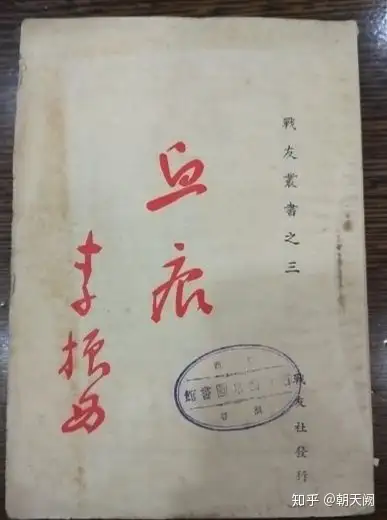 戰友叢書之三
血痕
李振西
戰友社發行
圖書館
知乎 @朝天阙